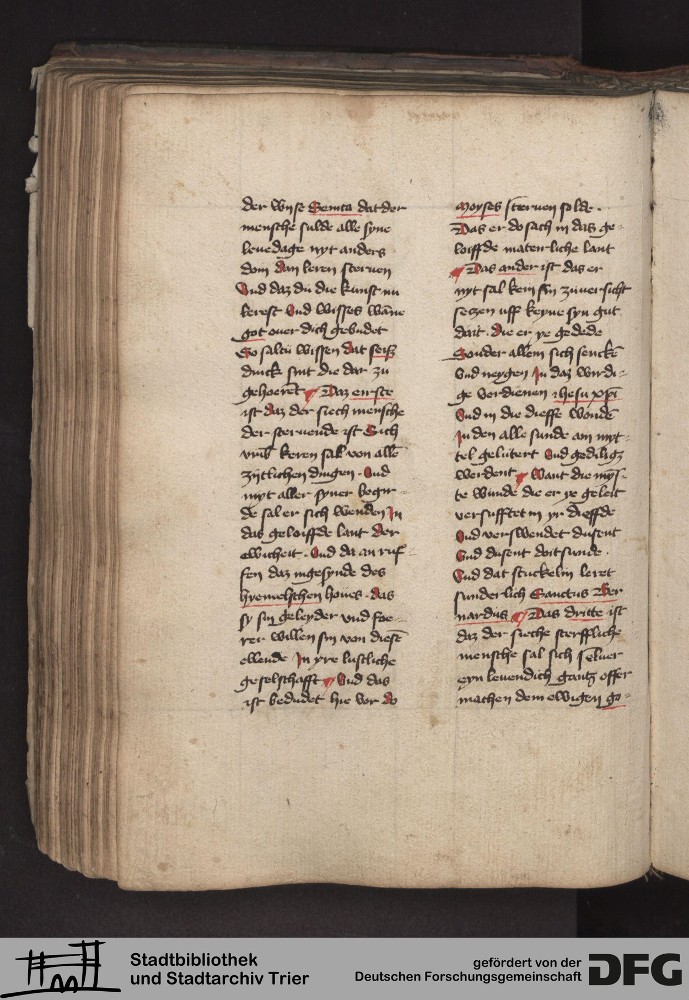 der wyse Seneca dat der
mensche sulde alle syne
leuedage nyt anders
dom dan leren steruen
Vnd daz du die kunst nu
lerest Vnd wisses wāne
got ouer dich gebudet
So saltu wissen dat seiß
dinck sint die dar zu
gehoerēt Daz erste
ist daz der siech mensche
der steruende ist Sich
vmb keren sal von allē
zijtlichen dingen . Vnd
myt aller syner begir-
de sal er sich wenden In
das geloiffde lant Der
ewicheit . Vnd da an ruf-
fen daz ingesynde des
hyemelschen houes . das
sy sin geleyder vnd foe-
rer willen sin von diesē
ellende In yre lustliche
geselschafft Vnd das
ist bedudet hie vor do
Moyses steruen solde .
Das er do sach in das ge-
loiffde materliche lant
Das ander ist das er
nyt sal kein sin zuuersicht
setzen uff keyne syn gut
dait . die er ye gedede
Sonder allein sich senckē
vnd neygen In daz wirdi-
ge verdienen ihesu xpi
Vnd in die dieffe wondē
In den alle sunde am myt-
tel gelutert Vnd gediligz
werdent Want die myn-
te wunde die er ye geleit
versufftet in yr dieffde
Vnd verswendet dusent
Vnd dusent doitsunde .
Vnd dat stuckelin leret
sunderlich Sanctus Ber
nardus Das dritte ist
daz der sieche sterffliche
mensche sal sich seluer
eyn leuendich gantz offer
machen dem ewigen go-
Stadtbibliothek
und Stadtarchiv Trier
gefördert von der
Deutschen Forschungsgemeinschaft
DFG